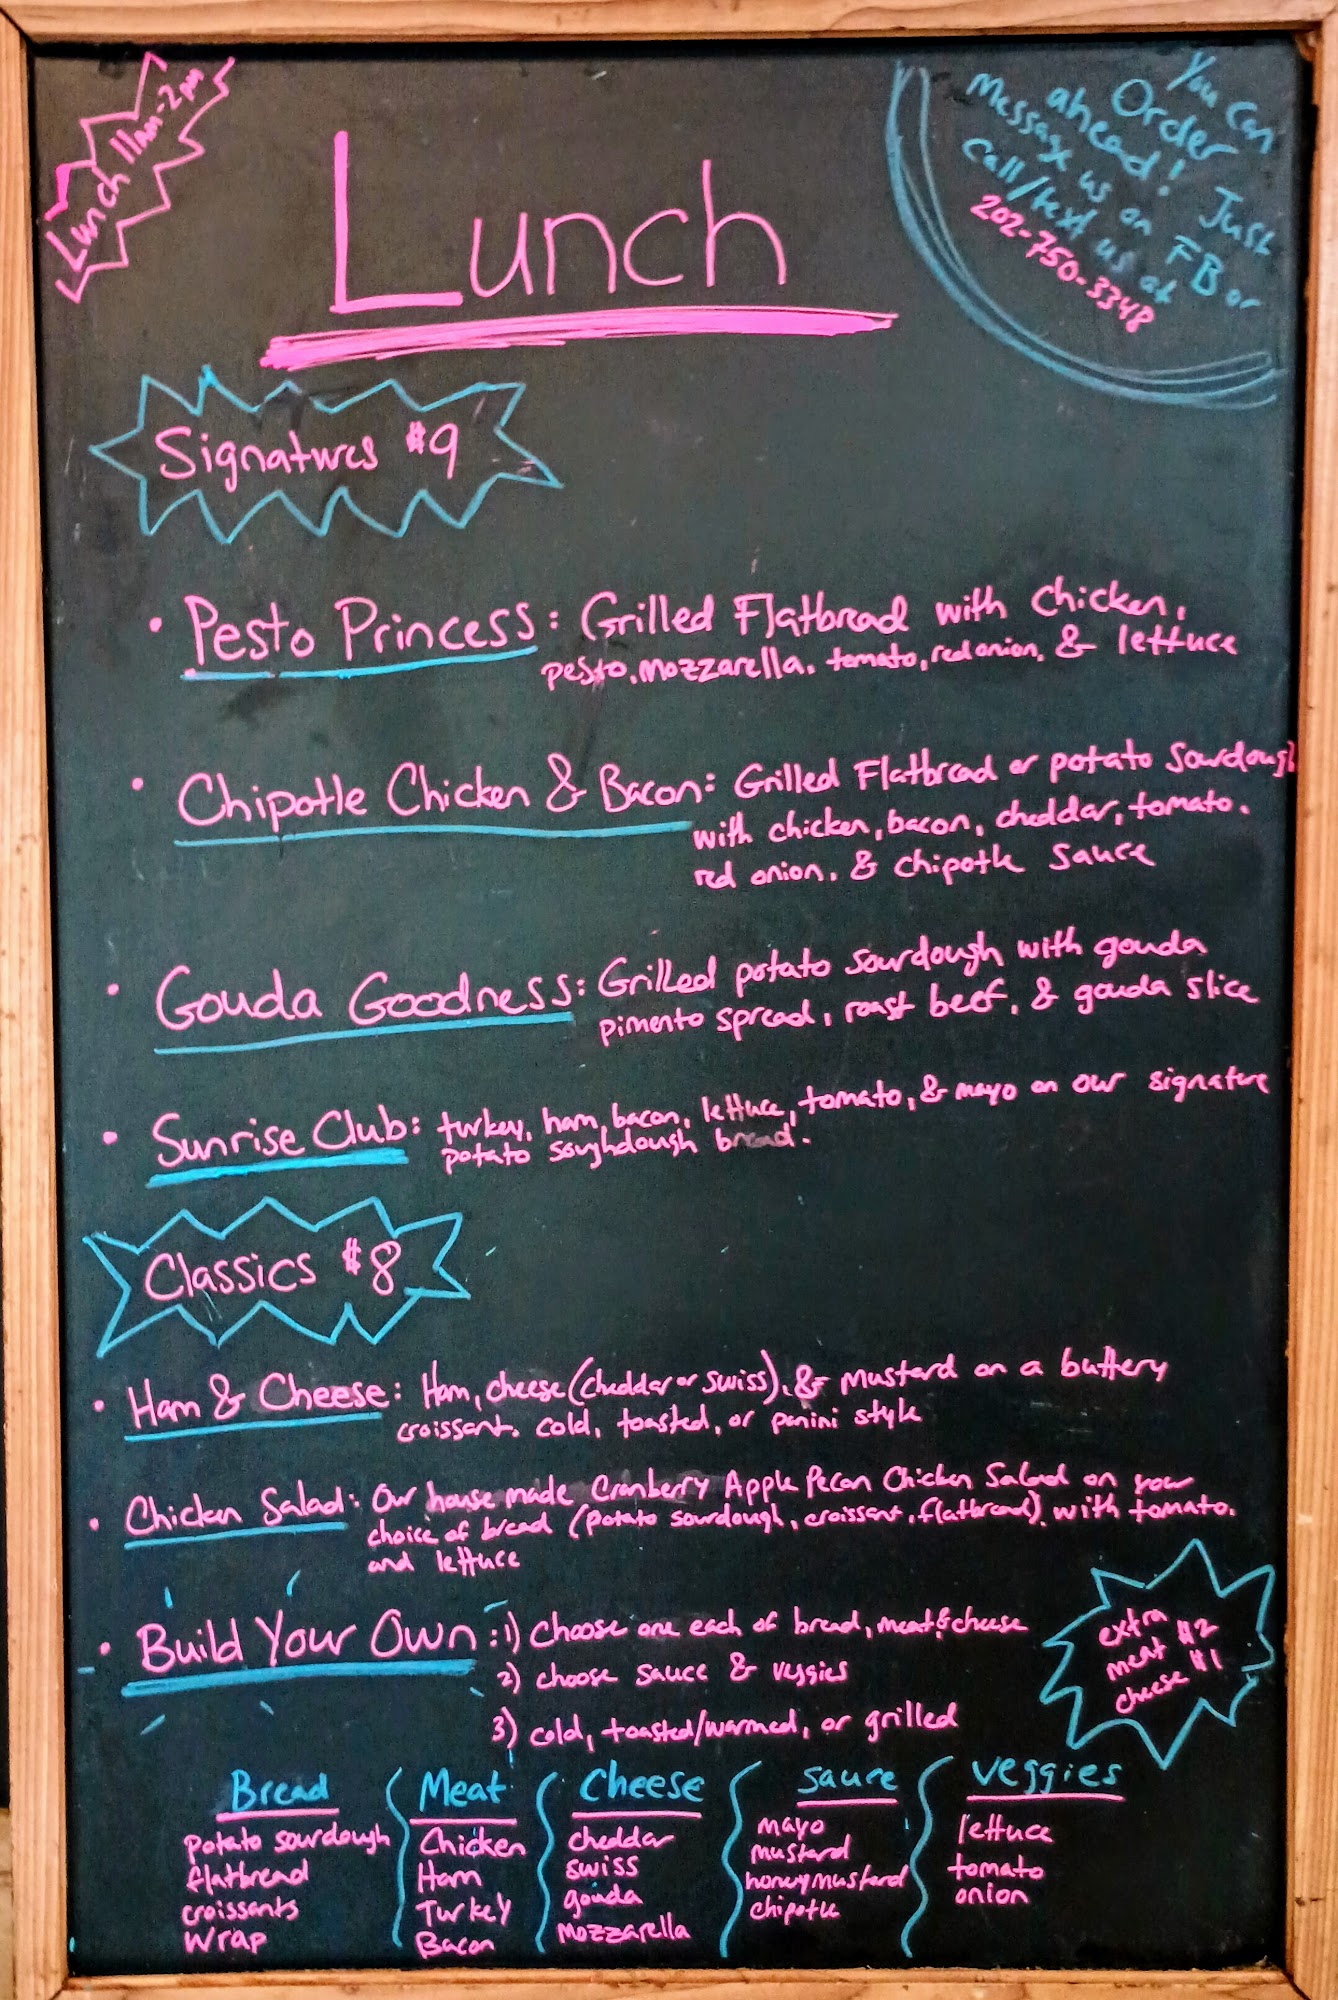 Lunch 11am-2pm
You can
Order
ahead! Just
message us on FB or
call/text us at
202-750-3348
Lunch
Signatures $9
• Pesto Princess: Grilled Flatbread with chicken,
pesto, mozzarella, tomato, red onion, & lettuce
• Chipotle Chicken & Bacon: Grilled Flatbread or potato sourdough
with chicken, bacon, cheddar, tomato,
red onion, & chipotle sauce
• Gouda Goodness: Grilled potato sourdough with gouda
pimento spread, roast beef, & gouda slice
• Sunrise Club: turkey, ham, bacon, lettuce, tomato, & mayo on our signature
potato soughdough bread.
Classics $8
• Ham & Cheese: Ham, cheese (cheddar or swiss), & mustard on a buttery
croissant. cold, toasted, or panini style
• Chicken Salad: Our house made Cranberry Apple Pecan Chicken Salad on your
choice of bread (potato sourdough, croissant, flatbread) with tomato.
and lettuce
• Build Your Own: 1) Choose one each of bread, meat & cheese
2) choose sauce & veggies
3) cold, toasted/warmed, or grilled
extra
meat $2
cheese $1
Bread Meat Cheese Sauce Veggies
potato sourdough Chicken cheddar mayo lettuce
flatbread Ham swiss mustard tomato
croissants Turkey gouda honeymustard onion
wrap Bacon mozzarella chipotle